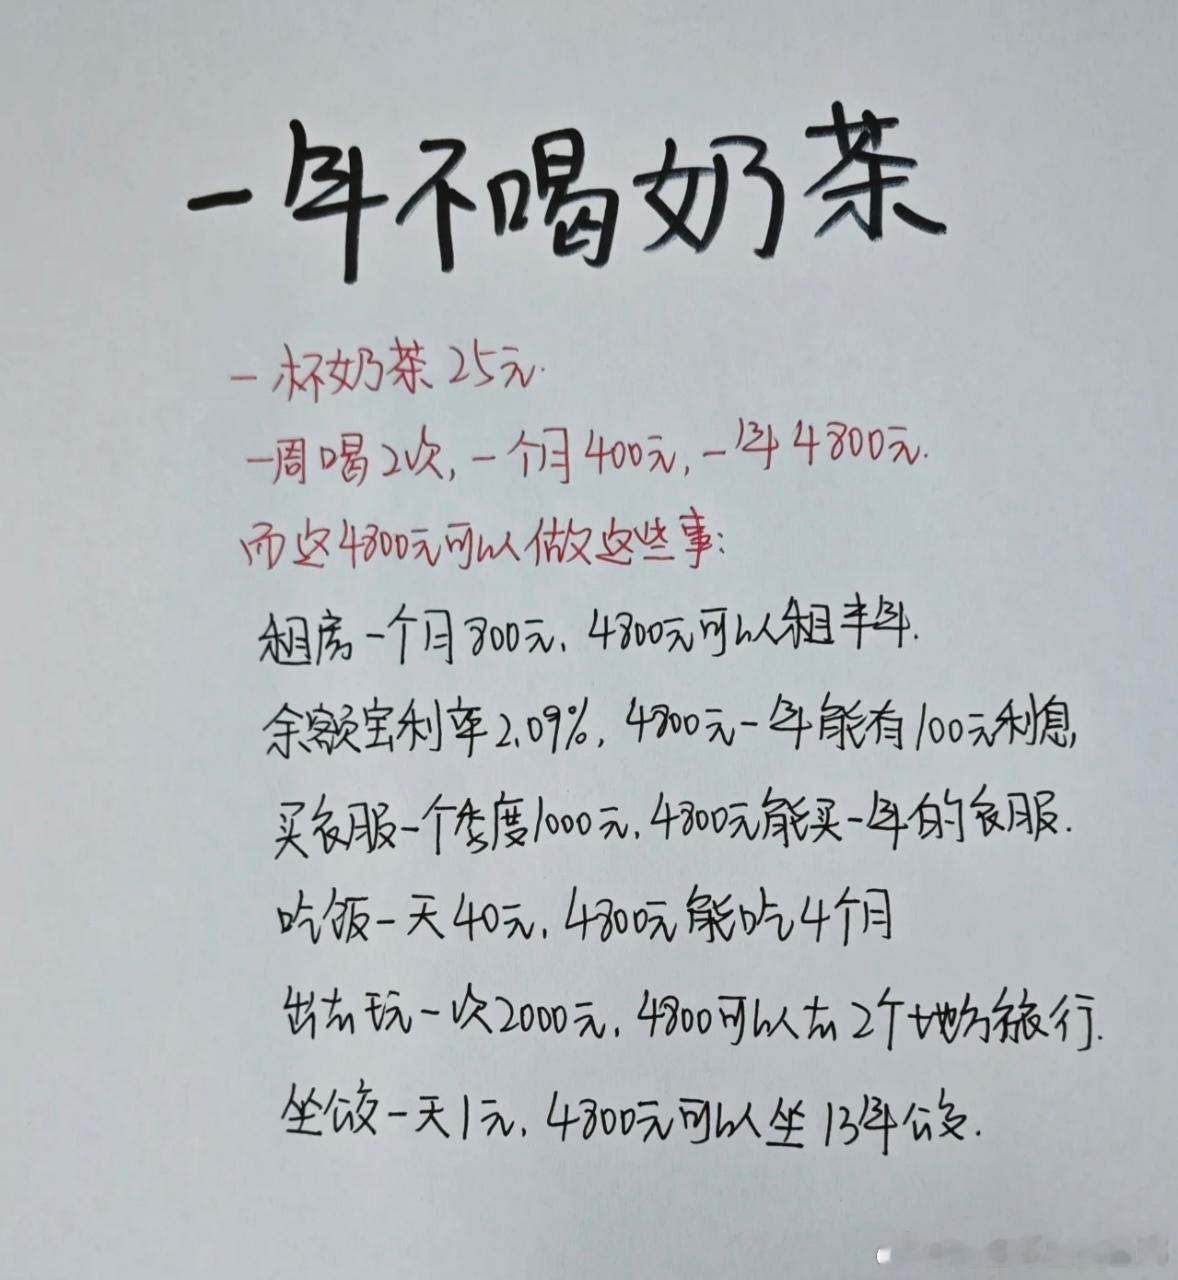 一年不喝奶茶
一杯奶茶25元.
一周喝2次,一个月400元,一年4800元.
而这4800元可以做这些事:
租房一个月800元,4800元可以租半年.
余额宝利率2.09%,4800元一年能有100元利息,
买衣服一个季度1000元,4800元能买一年的衣服.
吃饭一天40元,4800元能吃4个月
出去玩一次2000元,4800可以去2个地方旅行.
坐公交一天1元,4800元可以坐13年公交.